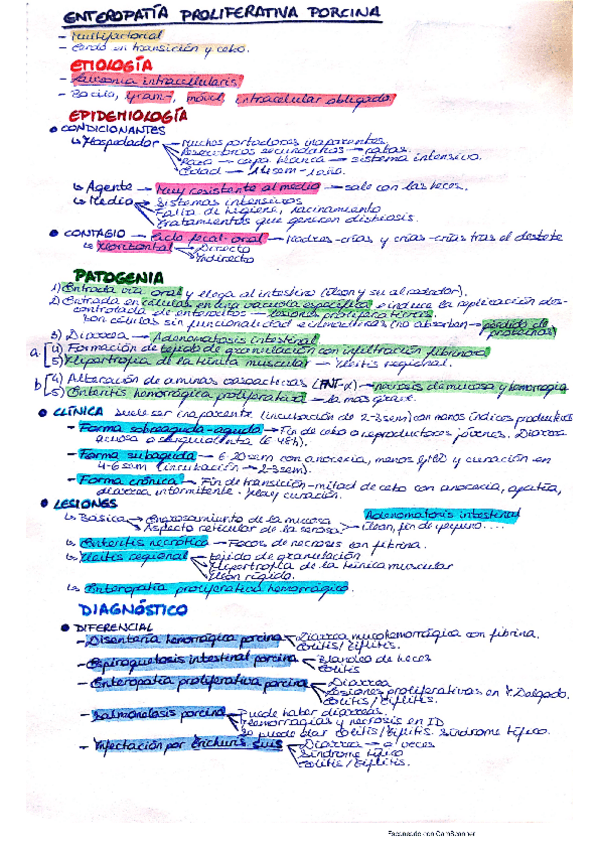 ENTEROPATÍA PROLIFERATIVA PORCINA
- Multifactorial
- Cerdo en transición y cebo.
ETIOLOGÍA
- Lawsonia intracellularis
- Bacilo, gram -, móvil, intracelular obligado
EPIDEMIOLOGÍA
• CONDICIONANTES
↳ Hospedador → Muchos portadores inaparentes
→ Reservorios secundarios → ratas.
→ Raza → capa blanca → sistema intensivo.
→ Edad → 14 sem - 1 año.
↳ Agente → Muy resistente al medio → sale con las heces.
↳ Medio → Sistemas intensivos
→ Falta de higiene, hacinamiento
→ Tratamientos que generen disbiosis.
• CONTAGIO → Ciclo fecal-oral → Madres-crías y crías-crías tras el destete
↳ Horizontal → Directo
→ Indirecto
PATOGENIA
1) Entrada vía oral y llega al intestino (íleon y su alrededor).
2) Entrada en células en una vacuola específica e induce la replicación des-
controlada de enterocitos → lesiones proliferativas.
Son células sin funcionalidad e inmaduras (no absorben → pérdida de proteínas)
3) Diarrea → Adenomatosis intestinal
a. 4) Formación de tejido de granulación con infiltración fibrinosa
5) Hipertrofia de la túnica muscular → Ileitis regional.
b. 4) Alteración de aminas vasoactivas (FNT-α) → necrosis de mucosa y hemorragia
5) Enteritis hemorrágica proliferativa → la más grave.
• CLÍNICA Suele ser inaparente (incubación de 2-3 sem) con menos índices productivos
- Forma sobreaguda-aguda → Fin de cebo o reproductores jóvenes. Diarrea
- Forma subaguda → 6-20 sem con anorexia, menos GMD y curación en
4-6 sem (incubación → 2-3 sem).
- Forma crónica → Fin de transición-mitad de cebo con anorexia, apatía,
diarrea intermitente y curación.
• LESIONES
↳ Básica → Engrosamiento de la mucosa
→ Aspecto reticular de la serosa
Adenomatosis intestinal
Íleon, fin de yeyuno....
↳ Enteritis necrótica → Focos de necrosis con fibrina.
↳ Ileitis regional → Tejido de granulación
→ Hipertrofia de la túnica muscular
→ Íleon rígido.
↳ Enteropatía proliferativa hemorrágica.
DIAGNÓSTICO
• DIFERENCIAL
- Disentería hemorrágica porcina → Diarrea mucohemorrágica con fibrina.
Colitis/Tiflitis.
- Espiroquetosis intestinal porcina → Blandeo de heces
Colitis
- Enteropatía proliferativa porcina → Diarrea
Lesiones proliferativas en I. Delgado.
Colitis/Tiflitis.
- Salmonelosis porcina → Puede haber diarreas.
Hemorragias y necrosis en ID
Se puede dar Colitis/Tiflitis. Síndrome tífico.
- Infectación por Trichuris suis → Diarrea → a veces
Síndrome tífico
Colitis/Tiflitis.
Escaneado con CamScanner